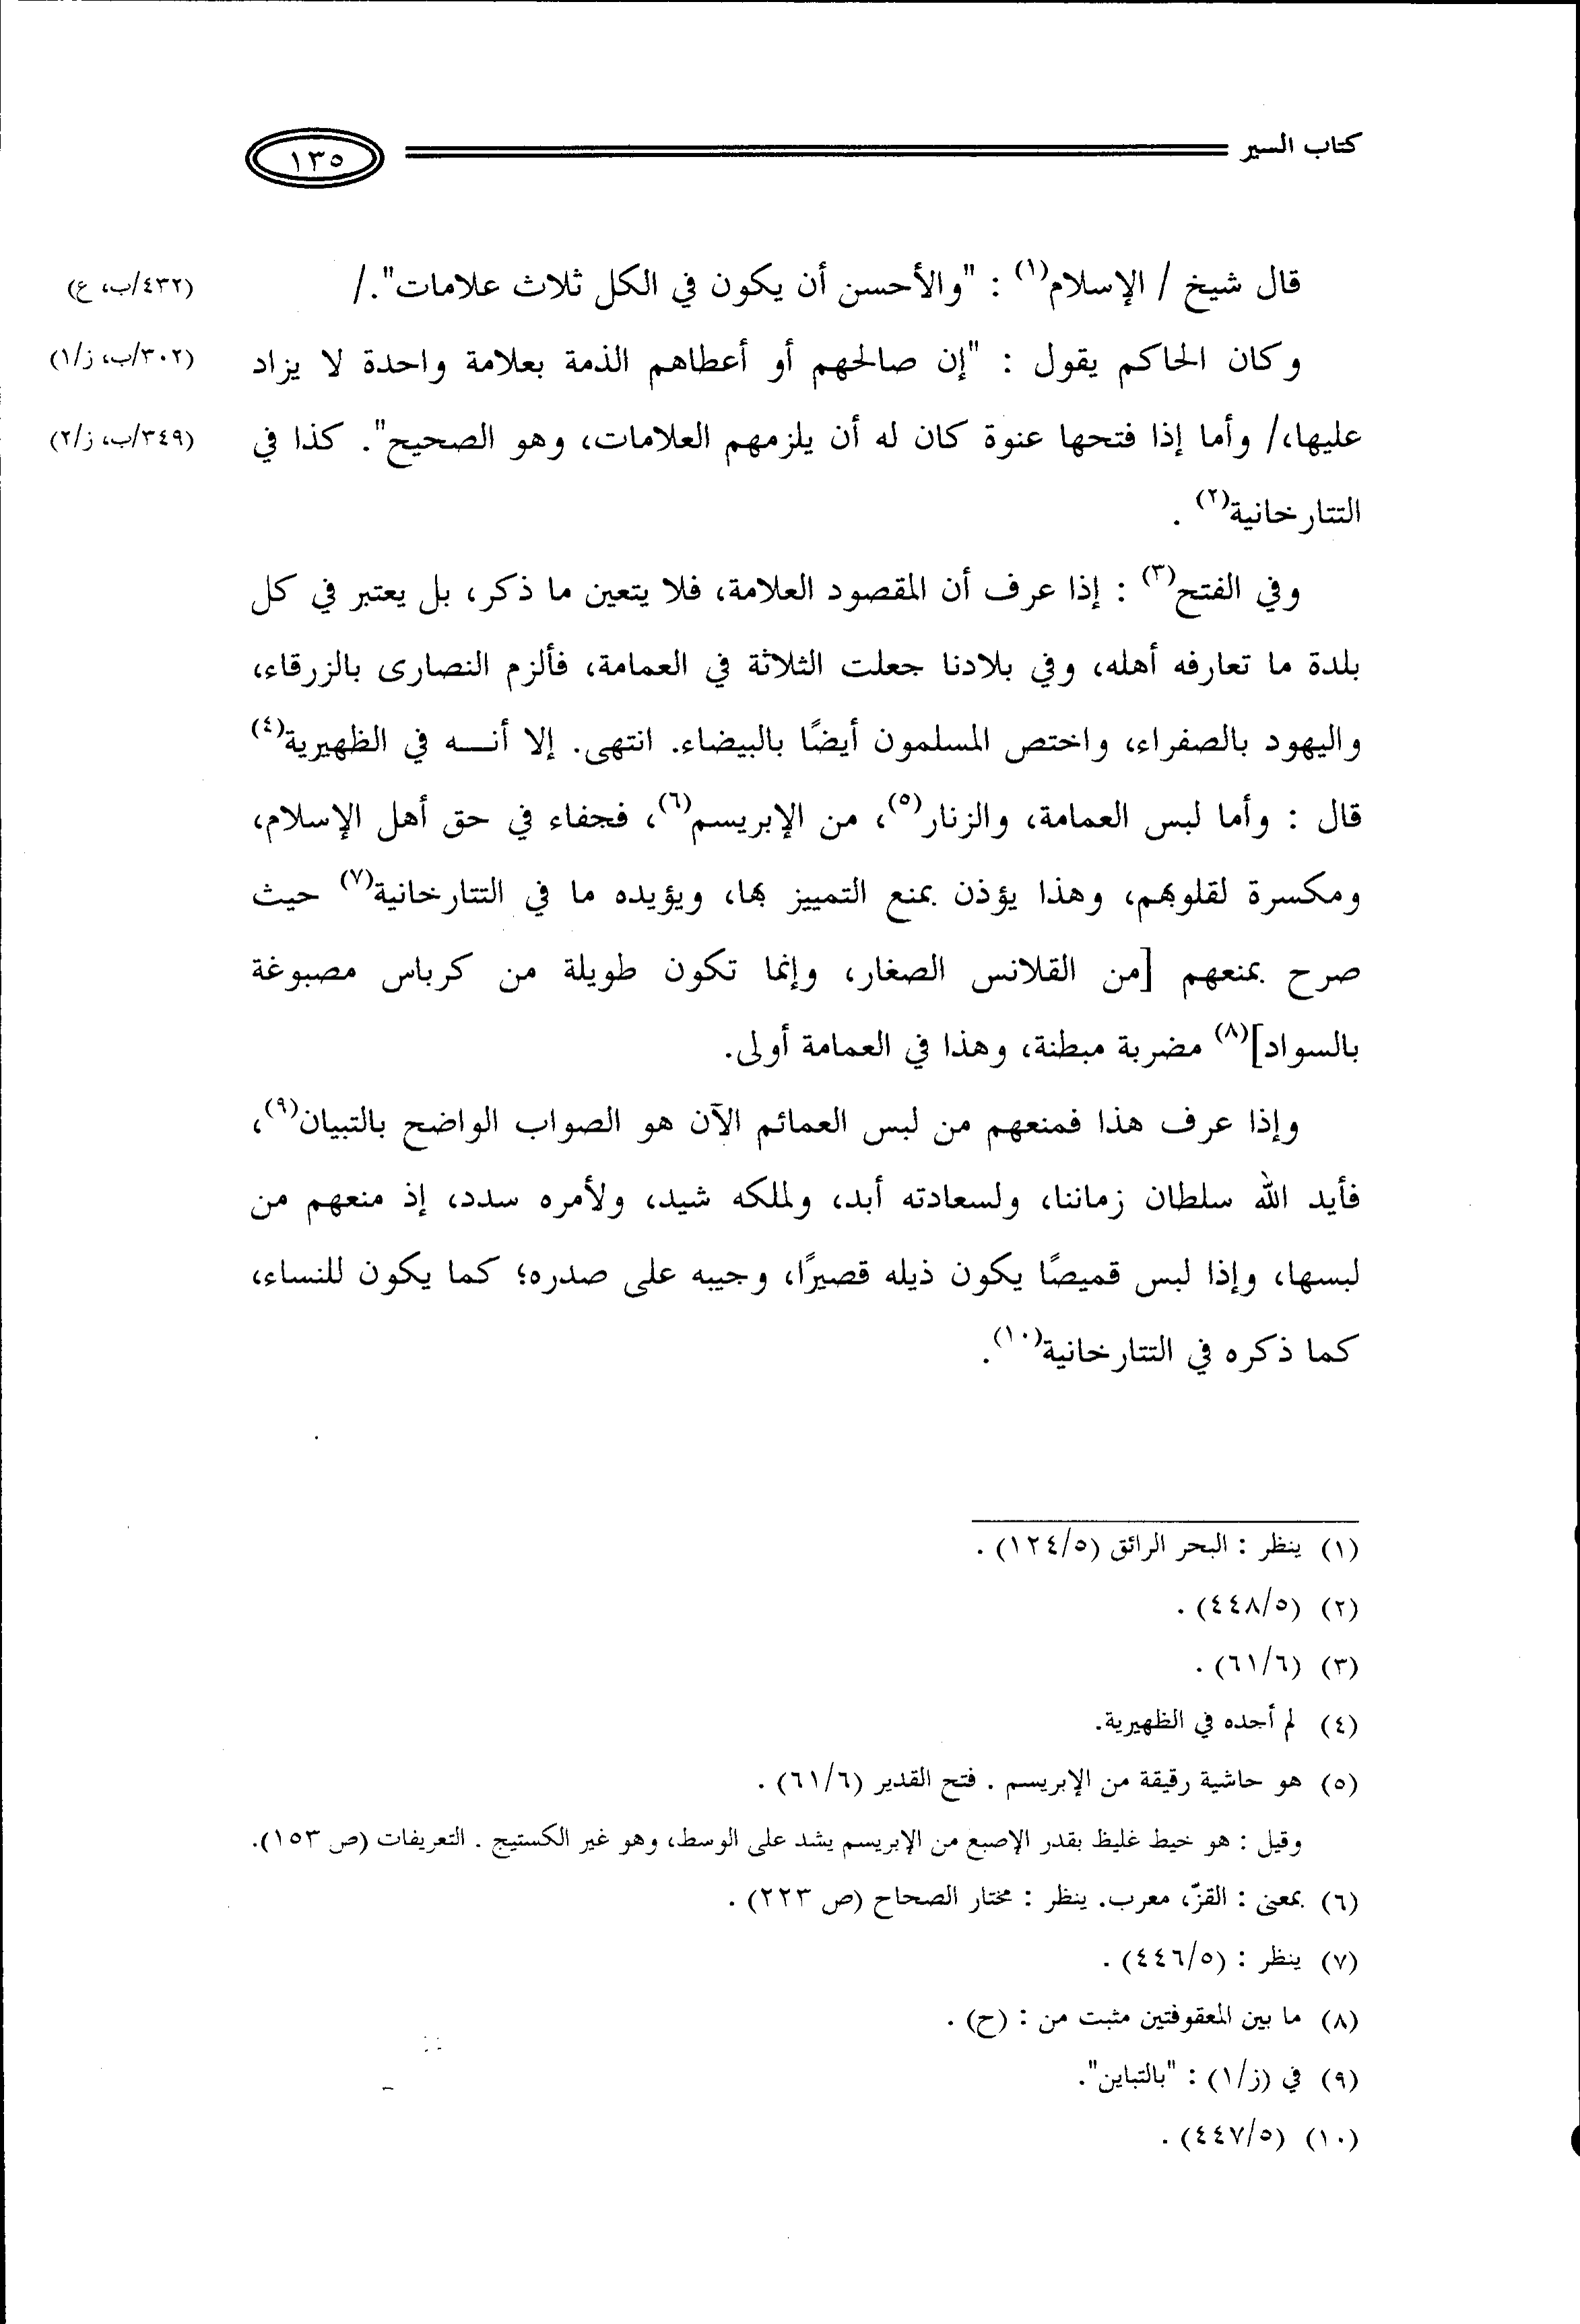 كتاب السير
١٣٥
قال شيخ / الإسلام(١) : "والأحسن أن يكون في الكل ثلاث علامات"./
(٤٣٢/ب، ع)
وكان الحاكم يقول : "إن صالحهم أو أعطاهم الذمة بعلامة واحدة لا يزاد
(٣٠٢/ب، ز/١)
عليها،/ وأما إذا فتحها عنوة كان له أن يلزمهم العلامات، وهو الصحيح". كذا في
(٣٤٩/ب، ز/٢)
التتارخانية(٢) .
وفي الفتح(٣) : إذا عرف أن المقصود العلامة، فلا يتعين ما ذكر، بل يعتبر في كل
بلدة ما تعارفه أهله، وفي بلادنا جعلت الثلاثة في العمامة، فألزم النصارى بالزرقاء،
واليهود بالصفراء، واختص المسلمون أيضًا بالبيضاء. انتهى. إلا أنـــه في الظهيرية(٤)
قال : وأما لبس العمامة، والزنار(٥)، من الإبريسم(٦)، فجفاء في حق أهل الإسلام،
ومكسرة لقلوبهم، وهذا يؤذن بمنع التمييز بها، ويؤيده ما في التتارخانية(٧) حيث
صرح بمنعهم [من القلانس الصغار، وإنما تكون طويلة من كرباس مصبوغة
بالسواد](٨) مضربة مبطنة، وهذا في العمامة أولى.
وإذا عرف هذا فمنعهم من لبس العمائم الآن هو الصواب الواضح بالتبيان(٩)،
فأيد الله سلطان زماننا، ولسعادته أبد، ولملكه شيد، ولأمره سدد، إذ منعهم من
لبسها، وإذا لبس قميصًا يكون ذيله قصيرًا، وجيبه على صدره؛ كما يكون للنساء،
كما ذكره في التتارخانية(١٠).
(١) ينظر : البحر الرائق (١٢٤/٥) .
(٢) (٤٤٨/٥) .
(٣) (٦١/٦) .
(٤) لم أجده في الظهيرية.
(٥) هو حاشية رقيقة من الإبريسم . فتح القدير (٦١/٦) .
وقيل : هو خيط غليظ بقدر الإصبع من الإبريسم يشد على الوسط، وهو غير الكستيج . التعريفات (ص ١٥٣).
(٦) بمعنى : القزّ، معرب. ينظر : مختار الصحاح (ص ٢٢٣) .
(٧) ينظر : (٤٤٦/٥) .
(٨) ما بين المعقوفتين مثبت من : (ح) .
(٩) في (ز/١) : "بالتباين".
(١٠) (٤٤٧/٥) .